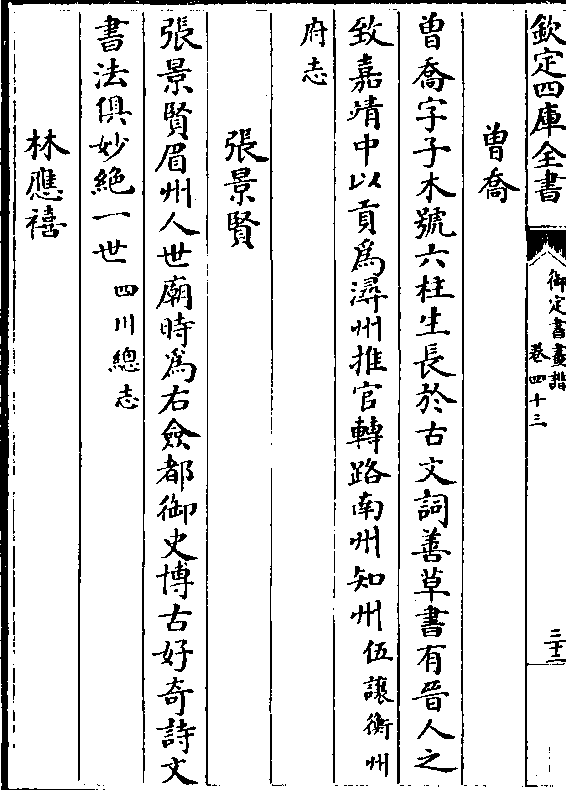 欽定四庫全書
御定書畫譜
卷四十三
三十二
曾喬
曾喬字子木號六柱生長於古文詞善草書有晉人之
致嘉靖中以貢為潯州推官轉路南州知州伍讓衡州
府志
張景賢
張景賢眉州人世廟時為右僉都御史博古好奇詩文
書法俱妙絶一世四川總志
林應禧